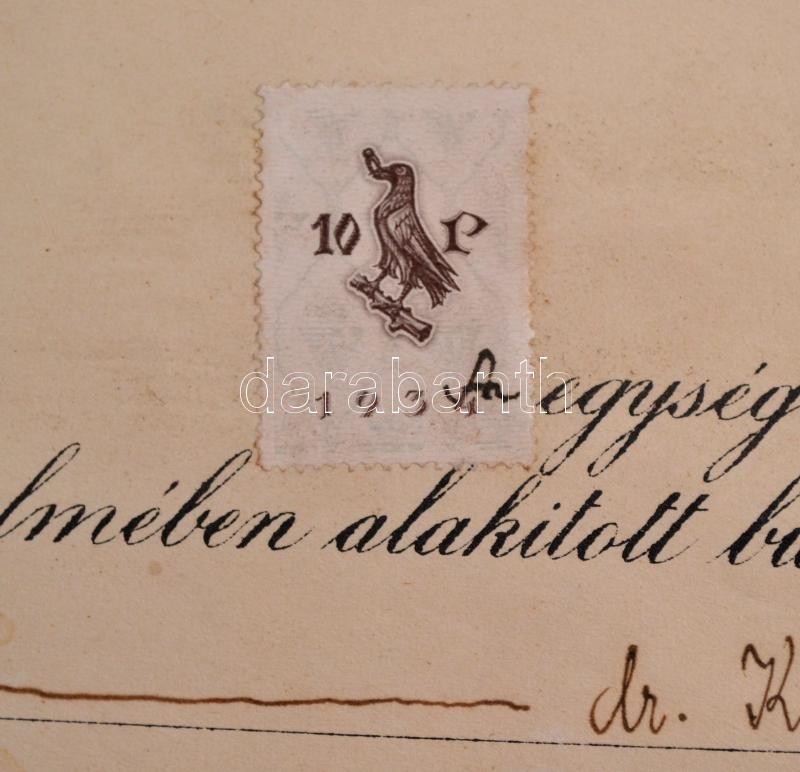 10 P
darabanth
egység
lmében alakitott
dr. K